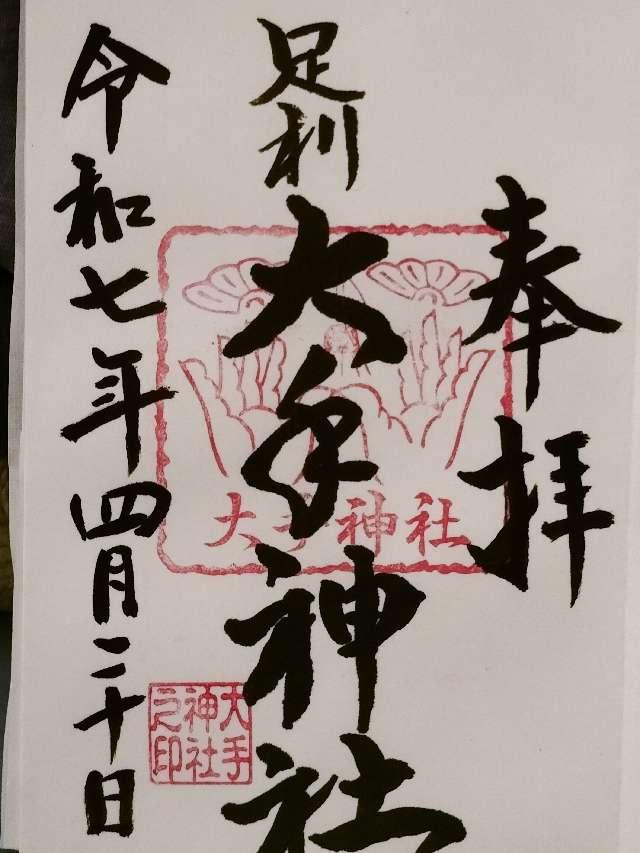 奉拝
足利
大手神社
大手神社
大手神社之印
令和七年四月二十日